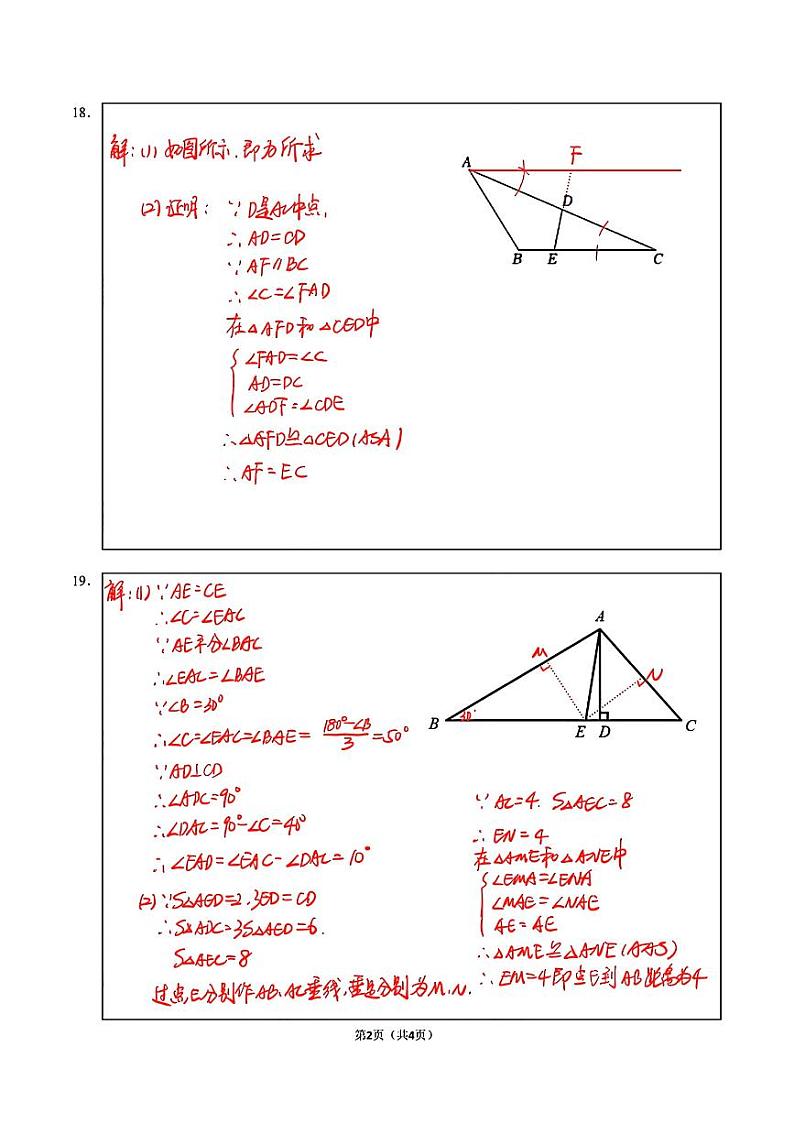 18.
解:(1)如图所示.即为所求
A
F
D
B
E
C
(2)证明: ∵D是AC中点,
∴AD=CD
∵AF∥BC
∴∠C=∠FAD
在△AFD和△CED中
∠FAD=∠C
AD=DC
∠ADF=∠CDE
∴△AFD≌△CED(ASA)
∴AF=EC
19.
解:(1)∵AE=CE
∴∠C=∠EAC
∵AE平分∠BAC
∴∠EAC=∠BAE
∵∠B=30°
∴∠C=∠EAC=∠BAE=(180°-∠B)/3=50°
∵AD⊥CD
∴∠ADC=90°
∴∠DAC=90°-∠C=40°
∴∠EAD=∠EAC-∠DAC=10°
(2)∵S△AED=2.3ED=CD
∴S△ADC=3S△AED=6.
S△AEC=8
过点E分别作AB、AC垂线,垂足分别为M、N.
A
M
N
B
30°
E
D
C
∵AC=4. S△AEC=8
∴EN=4
在△AME和△ANE中
∠EMA=∠ENA
∠MAE=∠NAE
AE=AE
∴△AME≌△ANE(AAS)
∴EM=4即点E到AB距离为4
第2页（共4页）